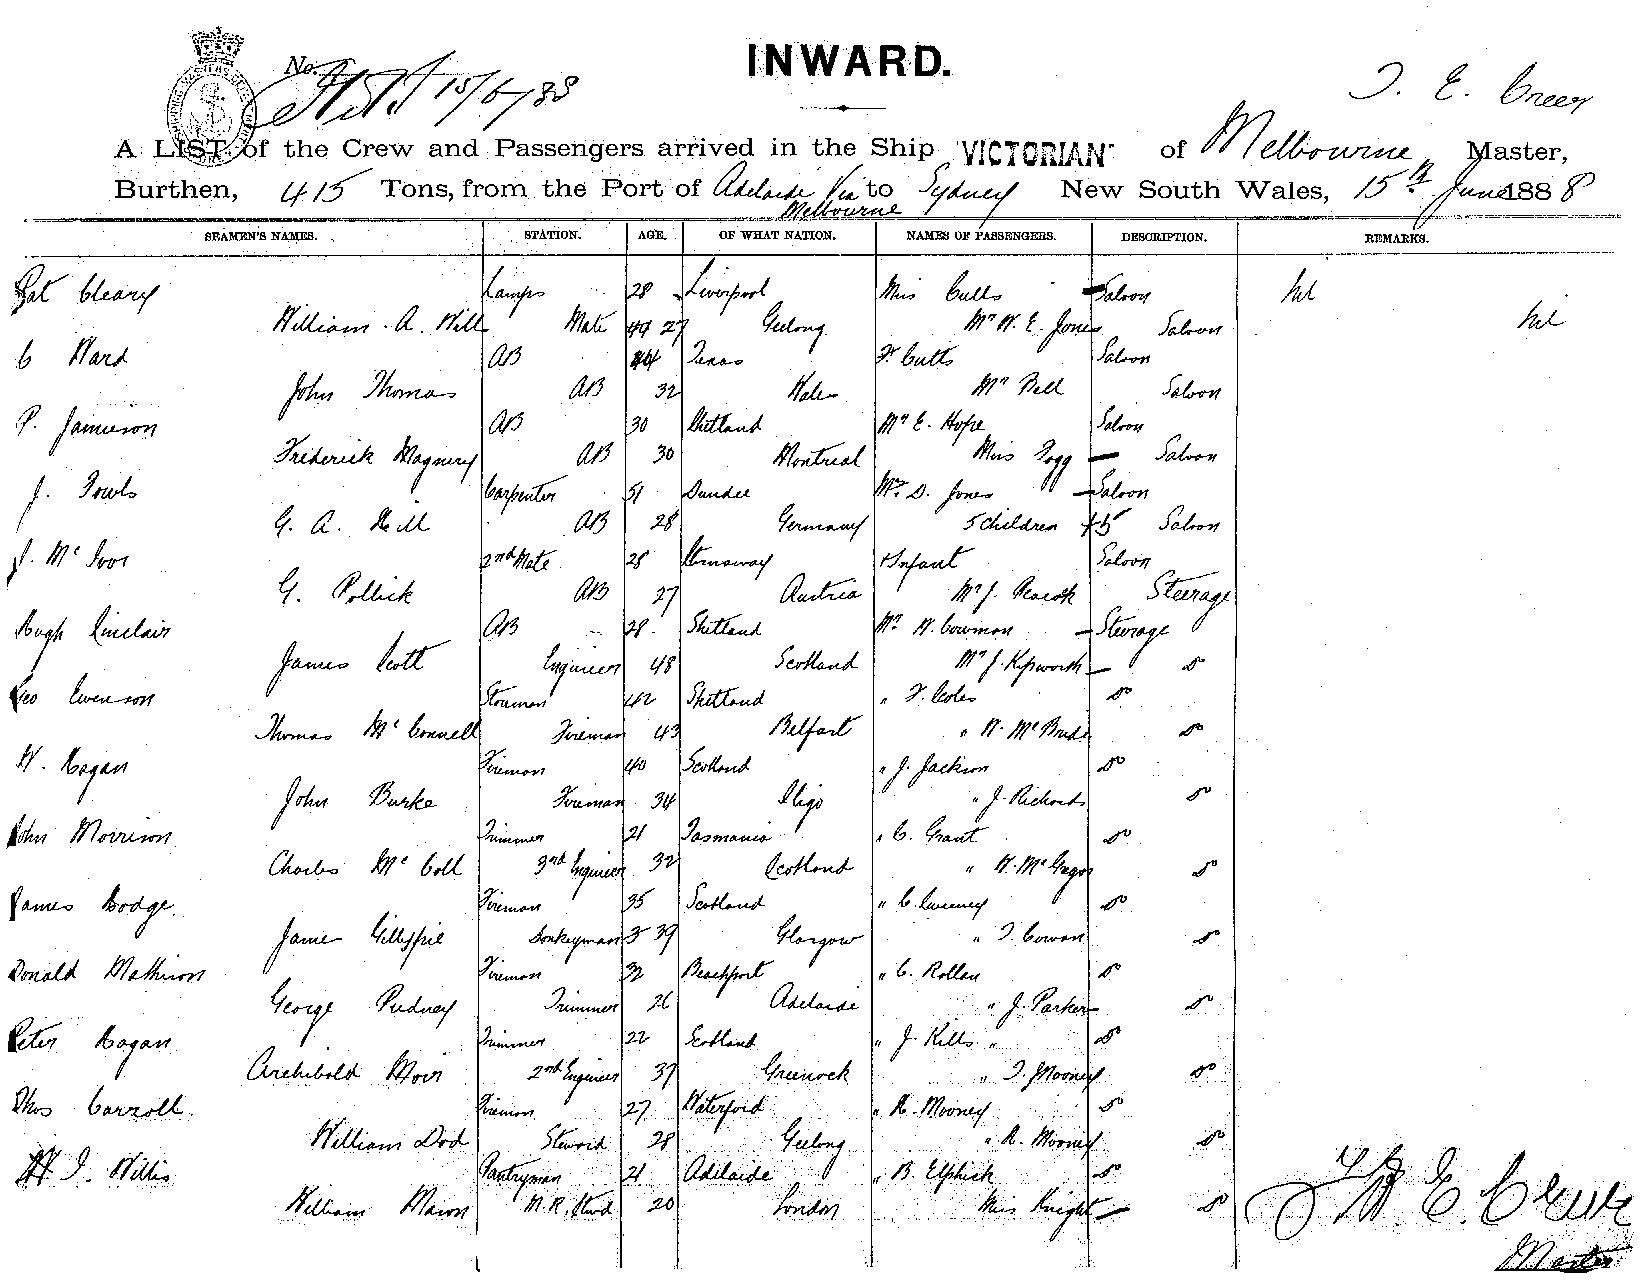 INWARD.
No. 15/6/88
T. E. Creer
A LIST of the Crew and Passengers arrived in the Ship "VICTORIAN" of Melbourne, Master,
Burthen, 415 Tons, from the Port of Adelaide Via to Sydney New South Wales, 15th June 1888
Melbourne
SEAMEN'S NAMES. STATION. AGE. OF WHAT NATION. NAMES OF PASSENGERS. DESCRIPTION. REMARKS.
Pat Cleary Lamps 28 Liverpool Miss Cutts Saloon Nil
William A. Will Mate 27 Geelong Mr W. E. Jones Saloon Nil
C Ward AB 44 Texas F. Cutts Saloon
John Thomas AB 32 Wales Mr Bell Saloon
P. Jamieson AB 30 Shetland Mr E. Hope Saloon
Frederick Magnery AB 30 Montreal Miss Fogg Saloon
J. Fowls Carpenter 51 Dundee Mrs D. Jones Saloon
G. A. Hill AB 28 Germany 5 Children +5 Saloon
J. McIvor 2nd Mate 28 Stornoway + Infant Saloon
G. Pollick AB 27 Austria Mr J. Peacock Steerage
Hugh Sinclair AB 28 Shetland Mrs W. Cowman Steerage
James Scott Engineer 48 Scotland Mr J. Kipworth Do
Geo Evenson Storeman 42 Shetland " F. Coles Do
Thomas McConnell Fireman 43 Belfast " W. McBride Do
W. Hogan Fireman 40 Scotland " J. Jackson Do
John Burke Fireman 34 Sligo " J. Richards Do
John Morrison Trimmer 21 Tasmania " C. Grant Do
Charles McColl 3rd Engineer 32 Scotland " W. McGregor Do
James Dodge Fireman 35 Scotland " C. Sweeney Do
James Gillespie Donkeyman 39 Glasgow " T. Cowan Do
Donald Mathison Fireman 32 Beachport " C. Rollan Do
George Pudney Trimmer 26 Adelaide " J. Parker Do
Peter Hogan Trimmer 22 Scotland " J. Kills " Do
Archibald Moir 2nd Engineer 37 Greenock " T. Mooney Do
Thos Carroll Fireman 27 Waterford " H. Mooney Do
William Dod Steward 28 Geelong " R. Mooney Do
W J. Willis Pantryman 21 Adelaide " B. Elphick Do
William Mason M.R. Stwd 20 London Miss Knight Do
E. Creer
Master